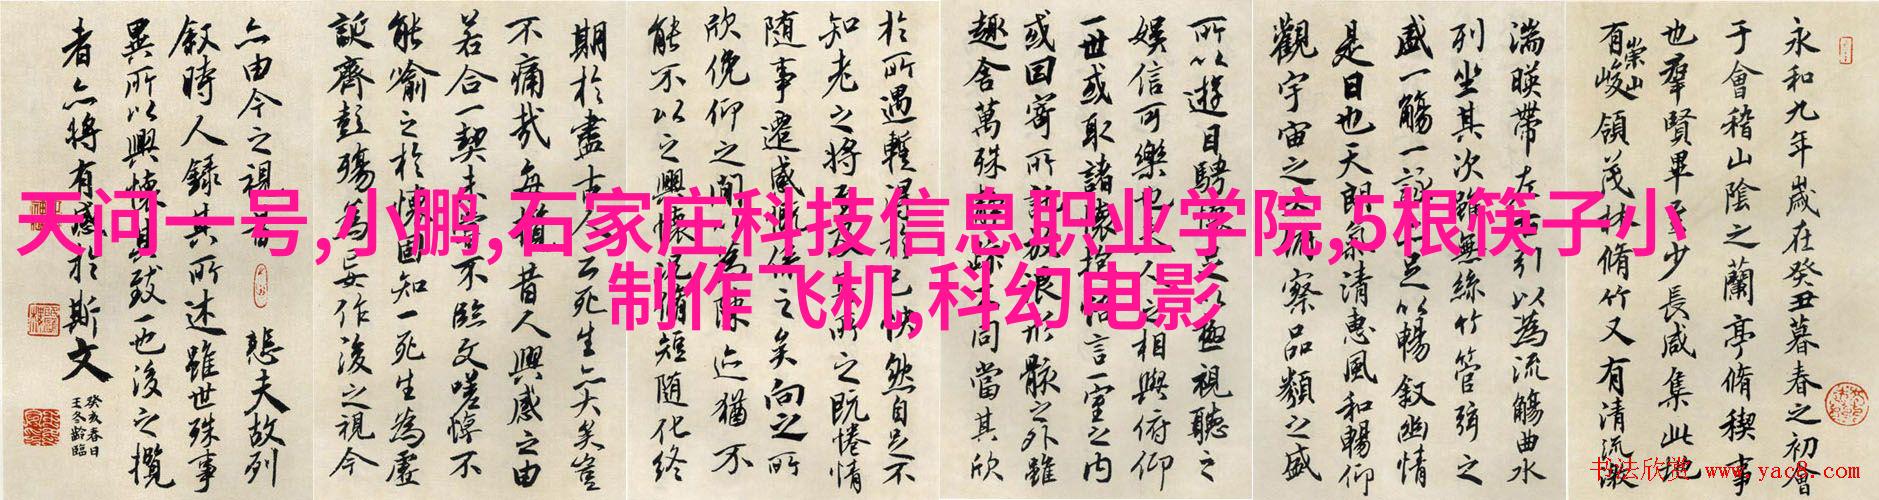 天问一号,小鹏,石家庄科技信息职业学院,5根筷子小
制作飞机,科幻电影
永和九年歲在癸丑暮春之初會
于會稽山陰之蘭亭脩稧事
也羣賢畢至少長咸集此地
有崇山峻領茂林脩竹又有清流激
湍暎帶左右引以為流觴曲水
列坐其次雖無絲竹管弦之
盛一觴一詠亦足以暢敘幽情
是日也天朗氣清惠風和暢仰
觀宇宙之大俯察品類之盛
所以遊目騁懷足以極視聽之
娛信可樂也夫人之相與俯仰
一世或取諸懷抱悟言一室之内
或因寄所託放浪形骸之外雖
趣舍萬殊靜躁不同當其欣
於所遇暫得於己快然自足不
知老之將至及其所之既惓情
随事遷感慨係之矣向之所
欣俛仰之間以為陳迹猶不
能不以之興懷況脩短随化終
期於盡古人云死生亦大矣豈
不痛哉每攬昔人興感之由
若合一契未嘗不臨文嗟悼不
能喻之於懷固知一死生為虛
誕齊彭殤為妄作後之視今
亦由今之視昔 悲夫故列
敘時人錄其所述雖世殊事
異所以興懷其致一也後之攬
者亦將有感於斯文
癸亥春日
王冬齡臨
书法欣赏 www.yac8.com